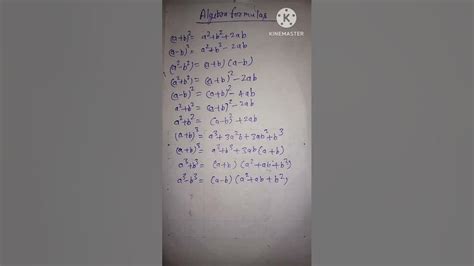 Algebra formulas
KINEMASTER
(a+b)² = a²+b²+2ab
(a-b)² = a²+b²-2ab
(a²-b²) = (a+b) (a-b)
(a²+b²) = (a+b)²-2ab
(a-b)² = (a+b)²-4ab
a²+b² = (a+b)²-2ab
a²+b² = (a-b)²+2ab
(a+b)³ = a³+3a²b+3ab²+b³
(a+b)³ = a³+b³+3ab(a+b)
a³+b³ = (a+b) (a²+ab+b²)
a³-b³ = (a-b) (a²+ab+b²)